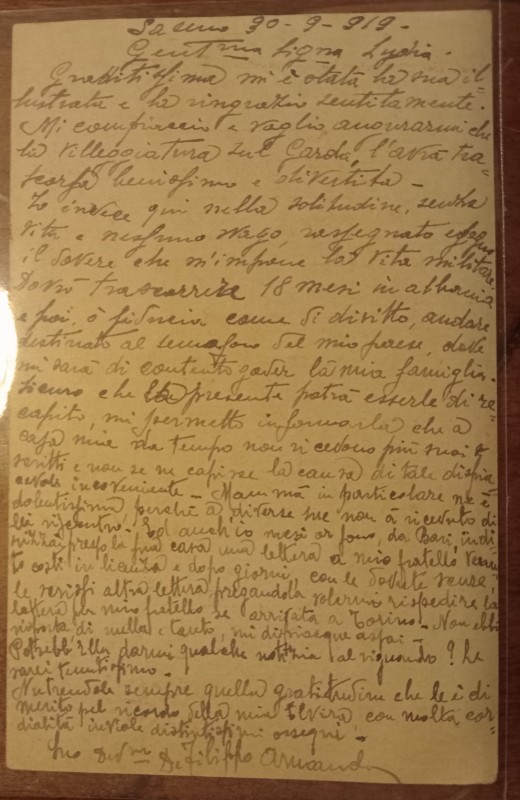 Saseno 30-9-919-
Gent.ma Signa Lydia.
Graditissima mi è stata la sua il-
lustrata e la ringrazio sentitamente.
Mi compiaccio e voglio augurarmi che
la villeggiatura sul Garda, l'avrà tra-
scorsa benissimo e divertita -
Io invece qui nella solitudine, senza
vita e nessuno svago, rassegnato
il dovere che m'impone la vita militare.
Dovrò trascorrere 18 mesi in albania
e poi, ò fiducia come di diritto, andare
destinato al semaforo del mio paese, dove
mi sarà di contento goder la mia famiglia.
Sicuro che la presente potrà esserle di re-
capito, mi permetto informarla che a
casa mia da tempo non ricevono più suoi
scritti e non se ne capisce la causa di tale dispia
cevole inconveniente - Mammà in particolare ne è
dolentissima perchè a diverse sue non à ricevuto di
lei riscontro. Ed anch'io mesi or sono, da Bari, indi-
rizzai presso la sua casa una lettera a mio fratello venu
to costì in licenza e dopo giorni, con le dovute scuse,
le scrissi altra lettera pregandola volermi rispedire la
lettera per mio fratello se arrivata a Torino - Non ebbi
risposta di nulla e tanto, mi dispiacque assai -
Potrebb'Ella darmi qualche notizia al riguardo? Le
sarei tenutissimo.
Nutrendole sempre quella gratitudine che le è di
merito pel ricordo della mia Elvira con molta cor-
dialità inviole distintissimi ossequi!
Suo Dev.mo De Filippo Armando